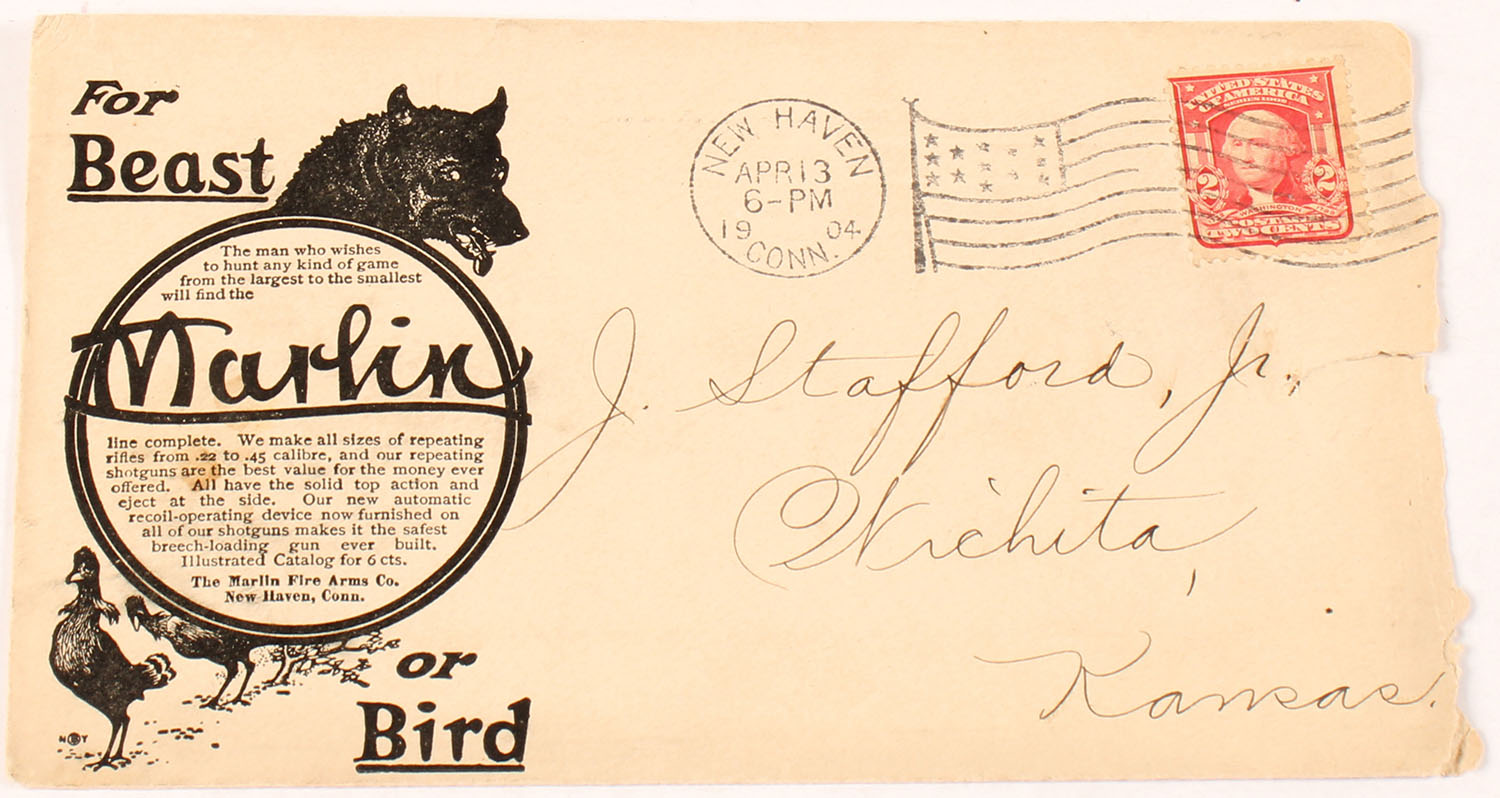 For
Beast
The man who wishes
to hunt any kind of game
from the largest to the smallest
will find the
Marlin
line complete. We make all sizes of repeating
rifles from .22 to .45 calibre, and our repeating
shotguns are the best value for the money ever
offered. All have the solid top action and
eject at the side. Our new automatic
recoil-operating device now furnished on
all of our shotguns makes it the safest
breech-loading gun ever built.
Illustrated Catalog for 6 cts.
The Marlin Fire Arms Co.
New Haven, Conn.
or
Bird
NEW HAVEN
APR 13
6-PM
19 04
CONN.
UNITED STATES
OF AMERICA
SERIES 1902
2 2
WASHINGTON
POSTAGE
TWO CENTS
J. Stafford, Jr.,
Wichita,
Kansas.